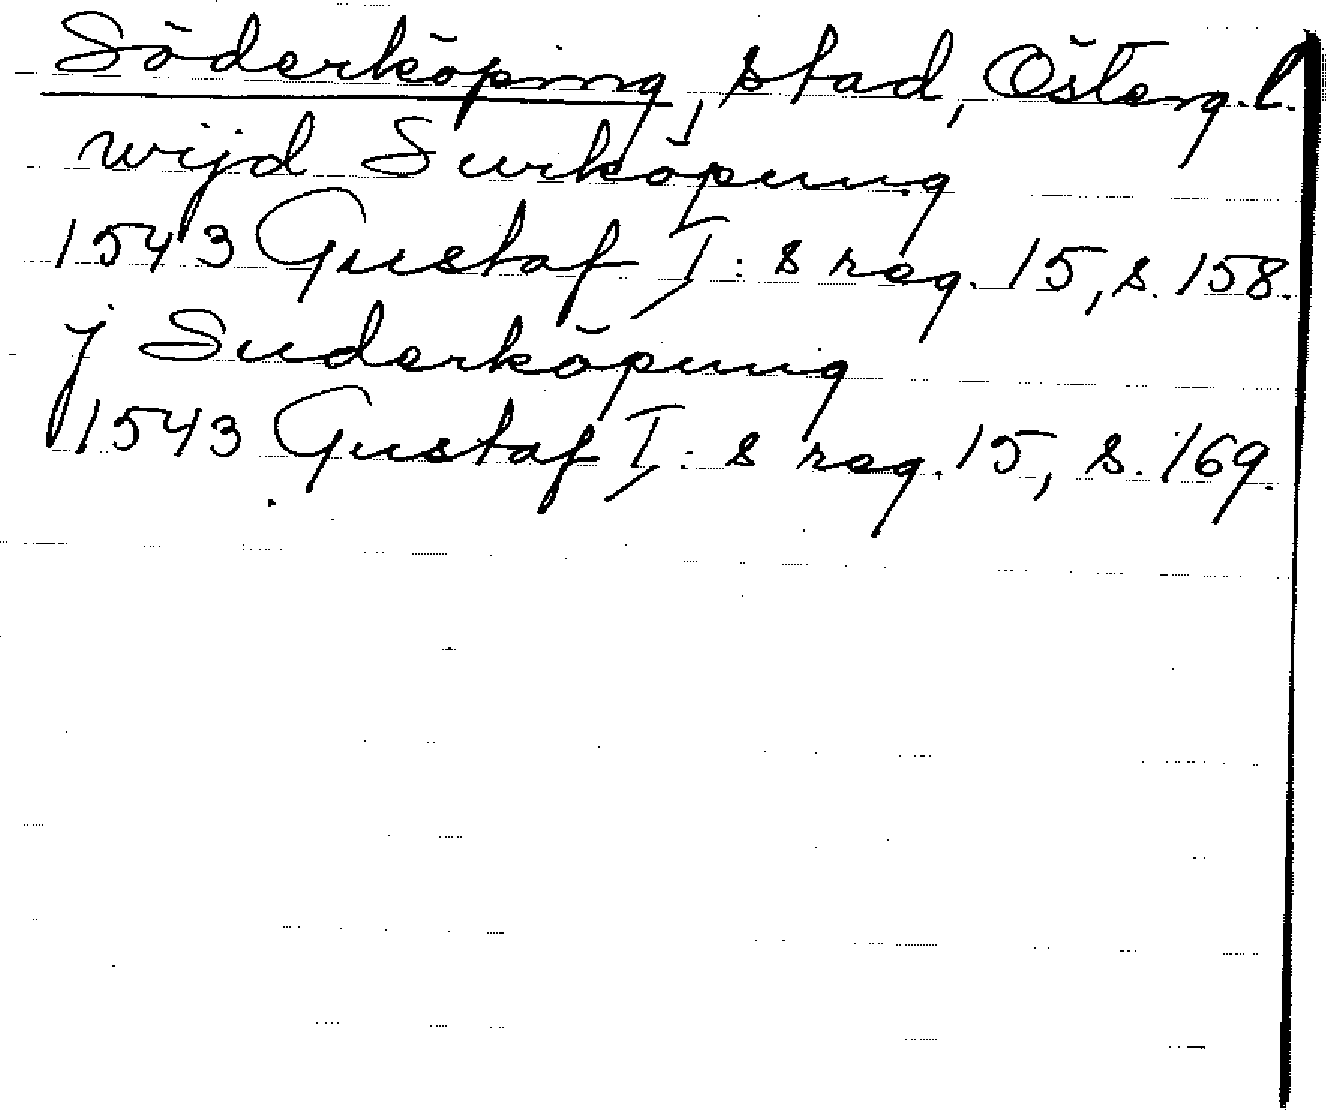 Söderköping, stad, Österg. l.
wijd Surköpung
1543 Gustaf I: s reg. 15, s. 158.
j Suderköpung
1543 Gustaf I: s reg. 15, s. 169.